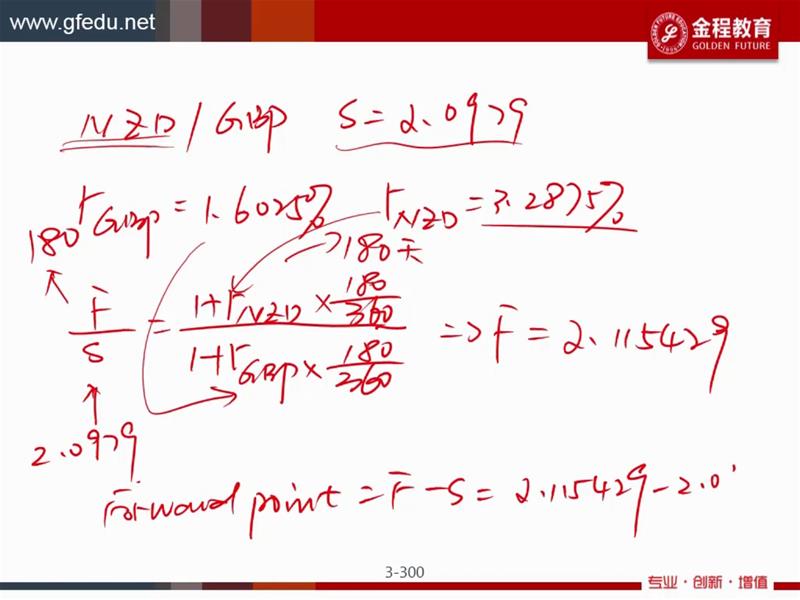 www.gfedu.net
金程教育
GOLDEN FUTURE
NZD / GBP S = 2.0979
r GBP = 1.6025% r NZD = 3.2875%
180 → 180天
F/S = (1+r NZD × 180/360) / (1+r GBP × 180/360) => F = 2.115429
2.0979
Forward point = F - S = 2.115429 - 2.0
3-300
专业·创新·增值